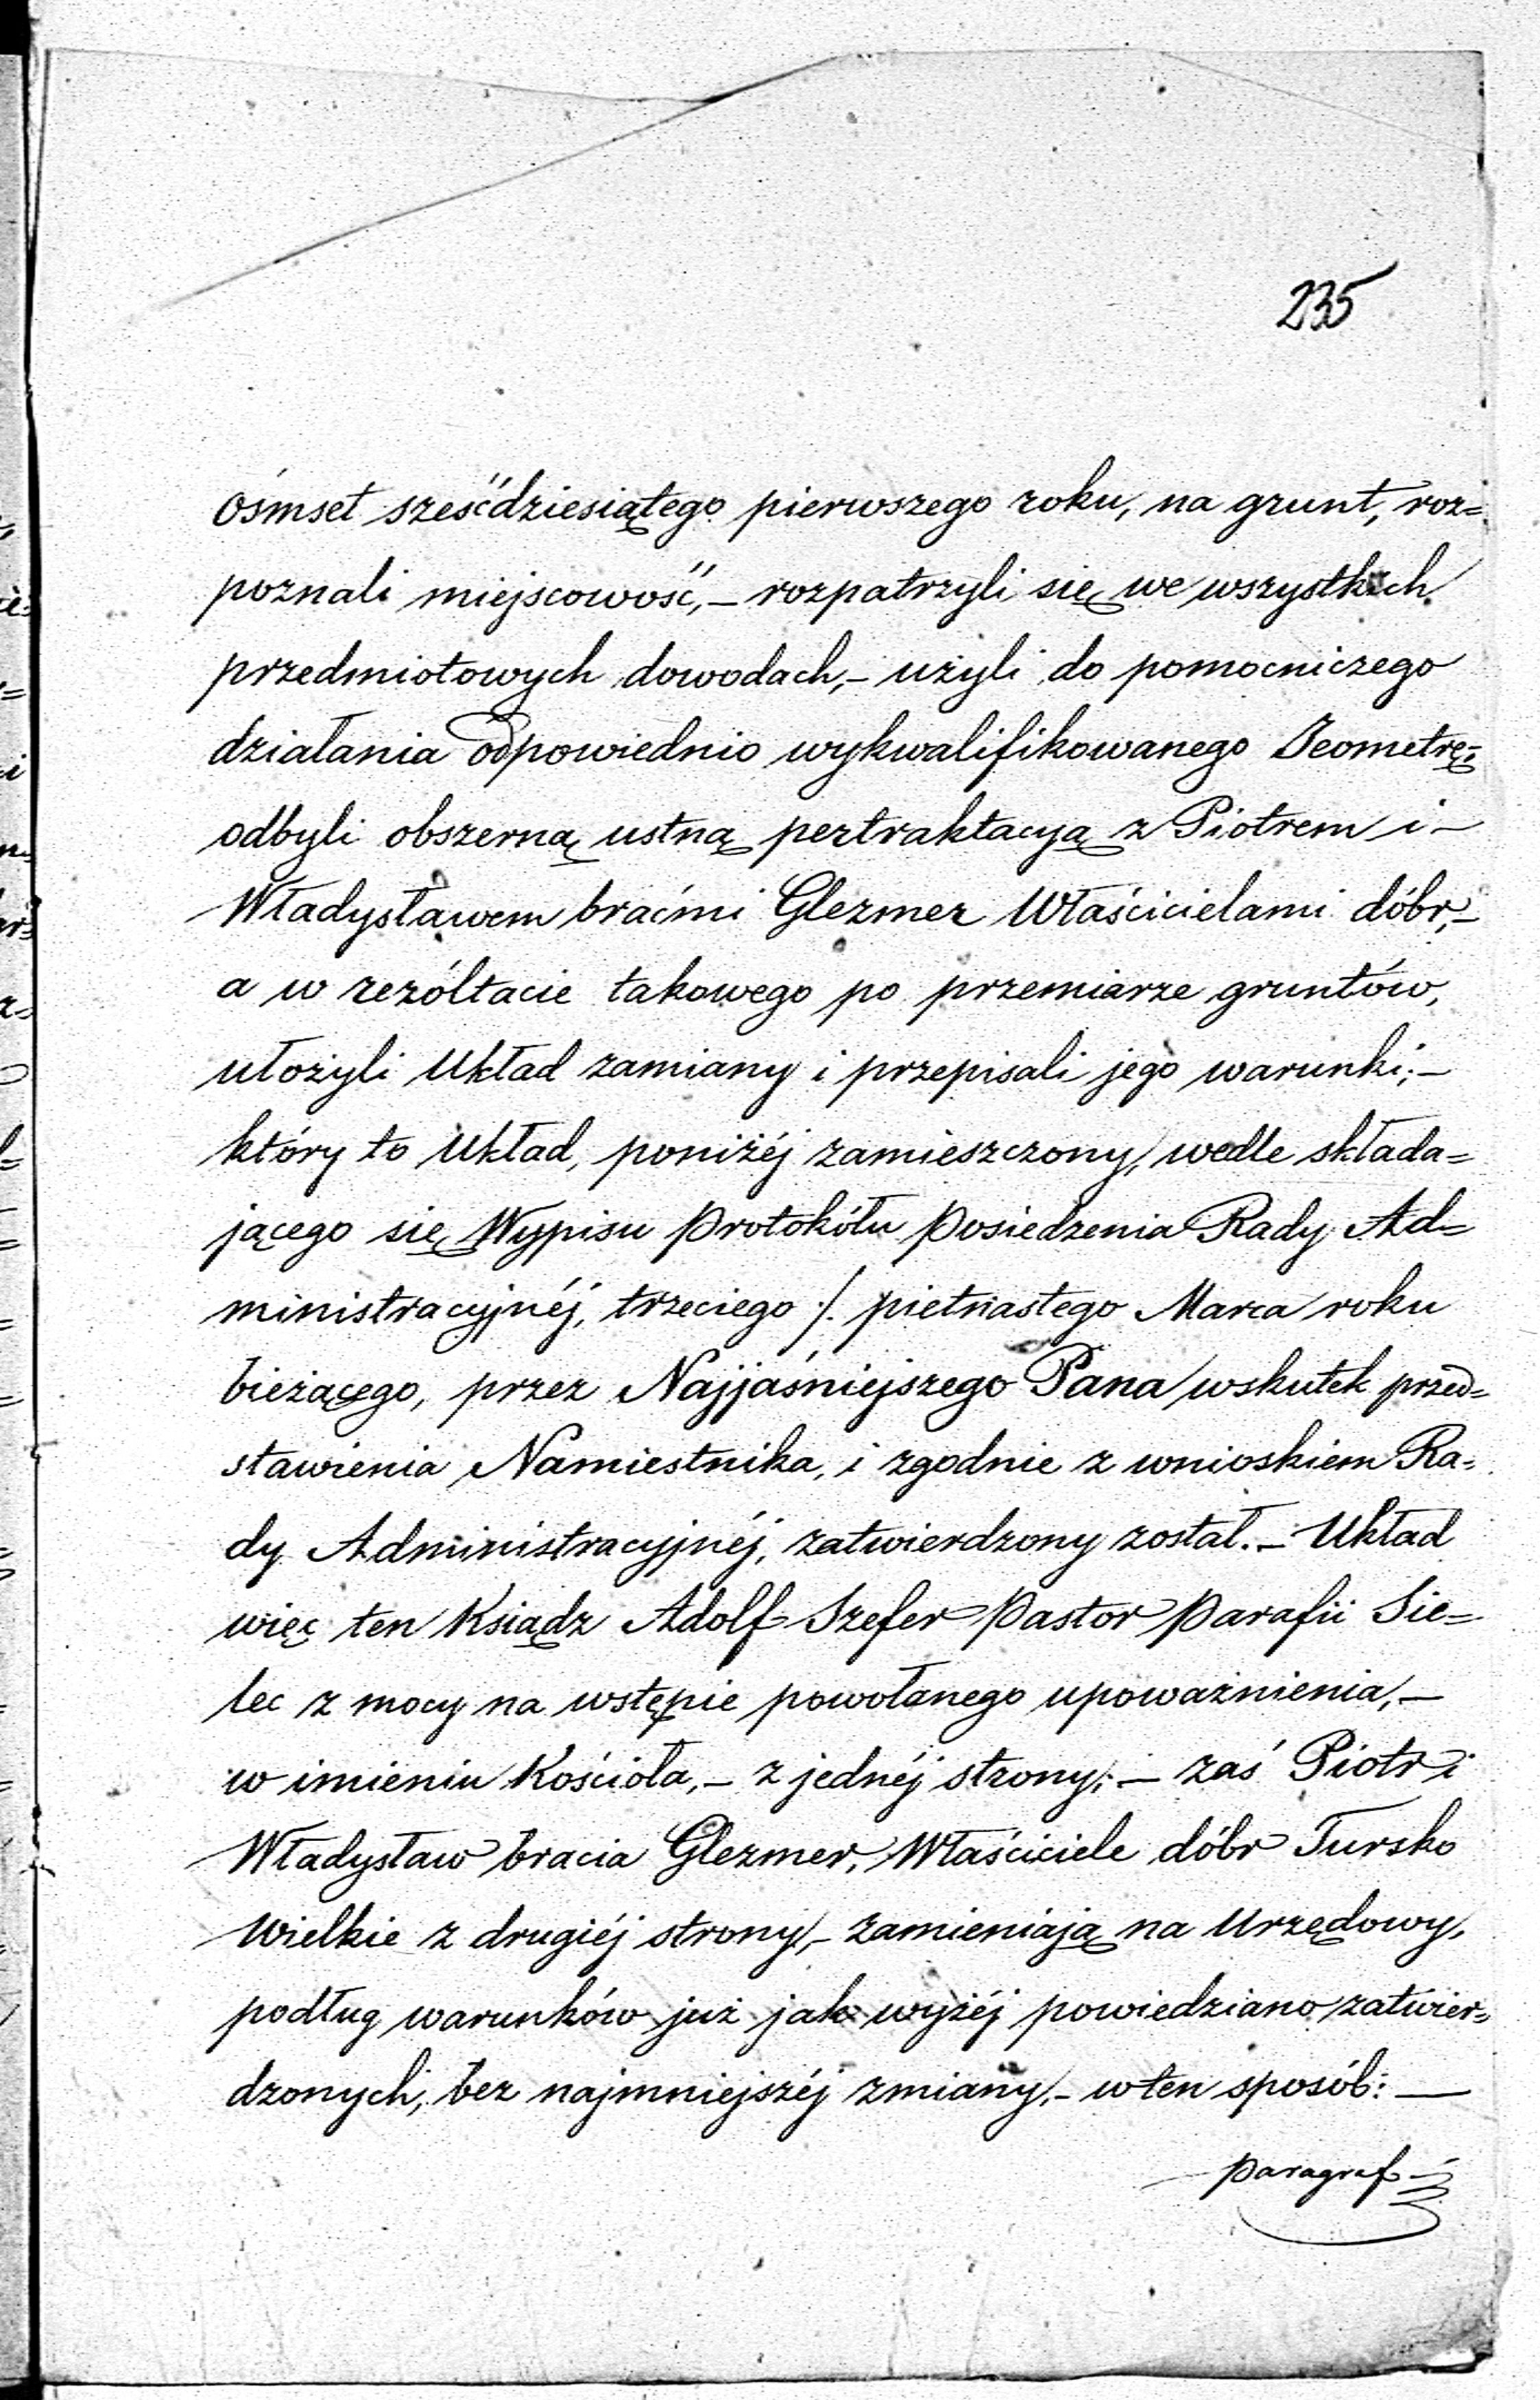 235
ośmset sześćdziesiątego pierwszego roku, na grunt, roz=
poznali miejscowość,– rozpatrzyli się we wszystkich
przedmiotowych dowodach,– użyli do pomocniczego
działania odpowiednio wykwalifikowanego Jeometrę;
odbyli obszerną ustną pertraktacyą z Piotrem i –
Władysławem braćmi Glezmer Właścicielami dóbr,–
a w rezóltacie takowego po przemiarze gruntów,
ułożyli Układ zamiany i przepisali jego warunki;–
który to Układ, poniżéj zamieszczony, wedle składa=
jącego się Wypisu Protokółu Posiedzenia Rady Ad=
ministracyjnéj, trzeciego ./. pietnastego Marca roku
bieżącego, przez Najjaśniejszego Pana wskutek przed=
stawienia Namiestnika, i zgodnie z wnioskiem Ra=
dy Administracyjnéj, zatwierdzony został.– Układ
więc ten Ksiądz Adolf Szefer Pastor Parafii Sie=
lec z mocy na wstępie powołanego upoważnienia,–
w imieniu Kościoła,– z jednéj strony;– zaś Piotr i
Władysław bracia Glezmer, Właściciele dóbr Tursko
Wielkie z drugiéj strony,– zamieniają na Urzędowy,
podług warunków już jak wyżéj powiedziano zatwier=
dzonych, bez najmniejszéj zmiany,– w ten sposób: —
Paragraf